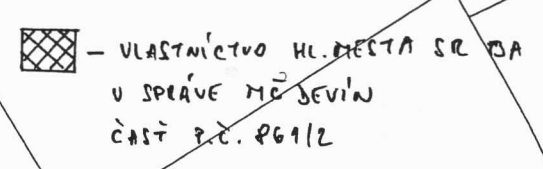 – VLASTNÍCTVO HL. MESTA SR BA
V SPRÁVE MČ DEVÍN
ČASŤ P.Č. 861/2